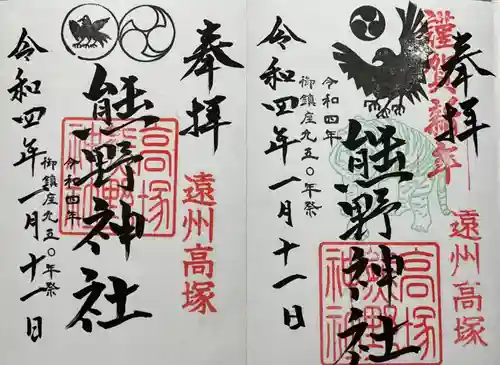 謹賀新年
奉拝
遠州高塚
熊野神社
高塚熊野神社
令和四年
御鎮座九五〇年祭
令和四年一月十一日
奉拝
遠州高塚
熊野神社
高塚熊野神社
令和四年
御鎮座九五〇年祭
令和四年一月十一日